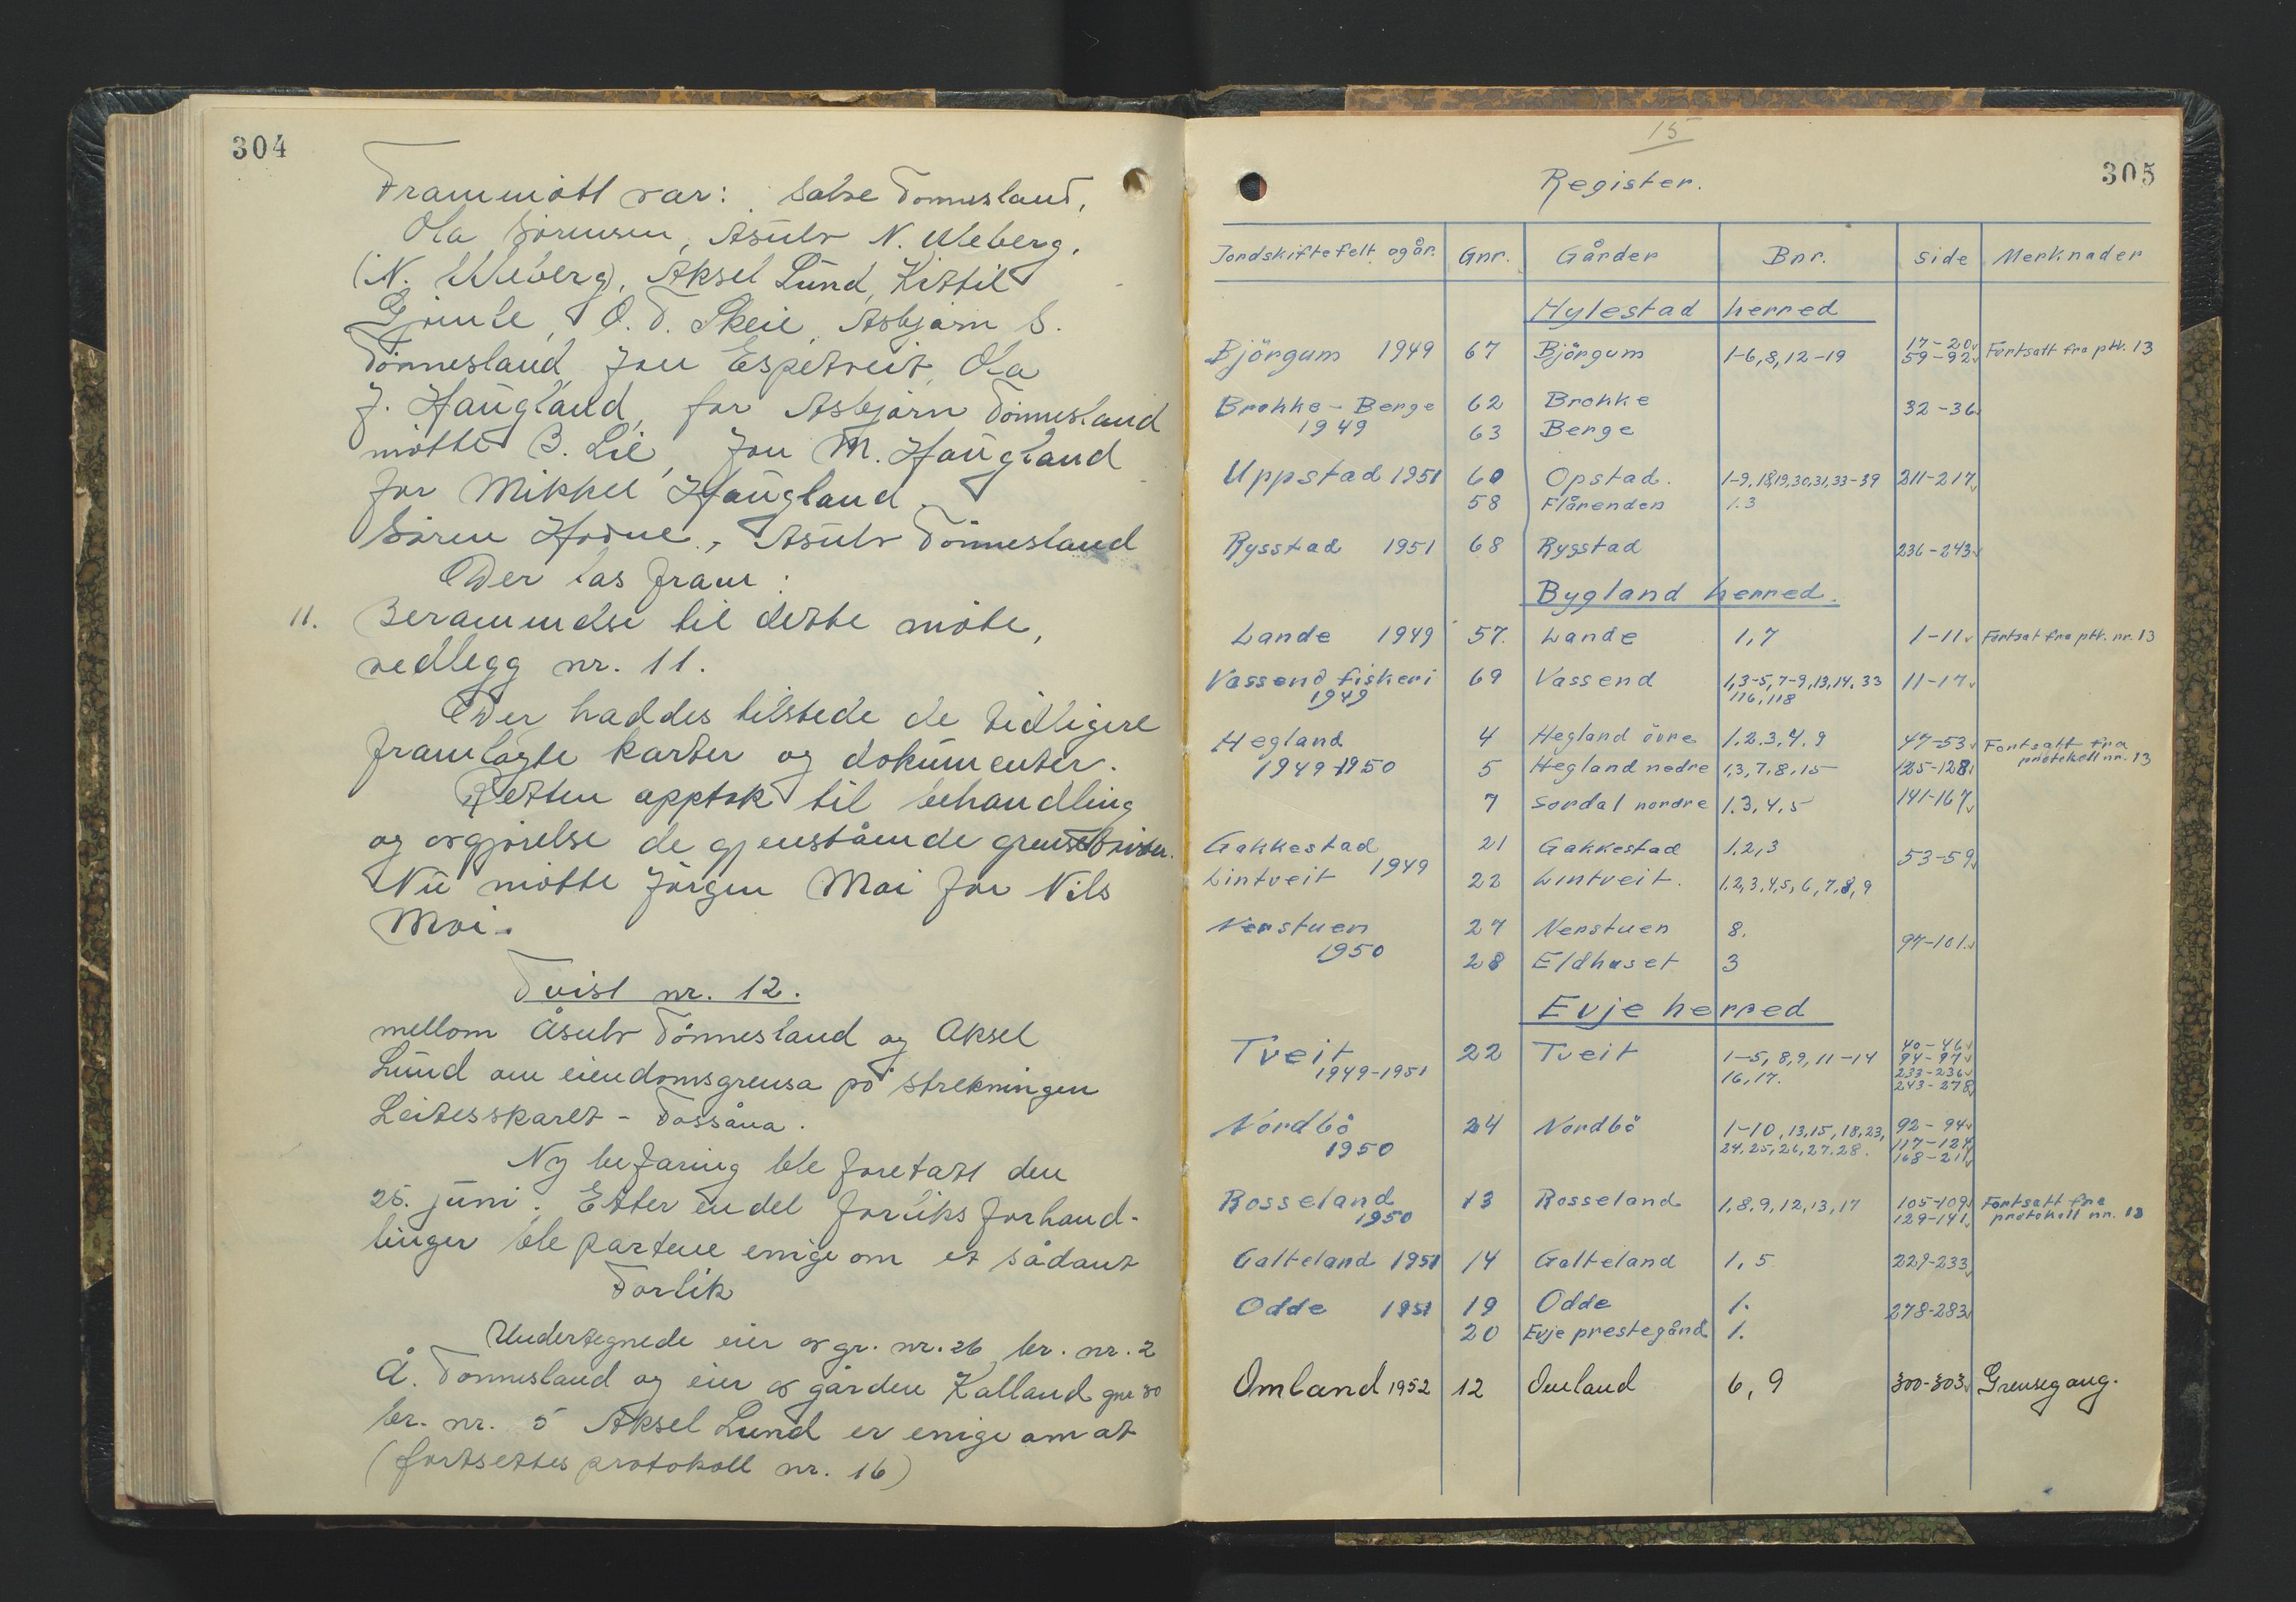 304
Frammött var: Salve Tönnesland,
Ola Sörensen, Åsulv N. Uleberg,
(N. Uleberg), Aksel Lund, Kittil
O. T. Skeie, Asbjørn S.
Tönnesland, Jon Espetveit, Ola
J. Haugland, for Asbjørn Tönnesland
mötte B. Lie, Jon M. Haugland
for Mikkel Haugland.
Sören Hodne, Åsulv Tönnesland
Der las fram:
11. Berammelse til dette möte,
vedlegg nr. 11.
Der haddes tilstede de tidligere
framlagte karter og dokumenter.
Retten opptok til behandling
og avgjörelse de gjenstående grensetvister.
Nu mötte Jörgen Moi for Nils
Moi.
Tvist nr. 12.
mellom Åsulv Tönnesland og Aksel
Lund om eiendomsgrensa på strekningen
Leitesskaret - Fossåna.
Ny befaring ble foretatt den
25. juni. Etter en del forliks forhand-
linger ble partene enige om et sådant
Forlik
Undertegnede eier av gr. nr. 26 br. nr. 2
Å. Tönnesland og eier av gården Kalland gnr 30
br. nr. 5 Aksel Lund er enige om at
(fortsettes protokoll nr. 16)
15
305
Register.
Jordskiftefelt og år. Gnr. Gårder Bnr. Side Merknader
Hylestad herred
Björgum 1949 67 Björgum 1-6, 8, 12-19 17-20 59-92 Fortsatt fra ptk. 13
Brokke - Berge 62 Brokke 32-36
1949 63 Berge
Uppstad 1951 60 Opstad. 1-9, 18,19,30,31,33-39 211-217
58 Flårenden 1.3
Rysstad 1951 68 Rysstad 236-243
Bygland herred.
Lande 1949 57. Lande 1, 7 1-11 Fortsat fra ptk. nr. 13
Vassend fiskeri 69 Vassend 1,3-5,7-9,13,14.33 11-17
1949 116, 118
Hegland 4 Hegland övre 1.2.3.4.9 47-53 Fortsatt fra
1949-1950 5 Hegland nedre 1,3,7,8,15 125-128 protokoll nr. 13
7 Sordal nordre 1.3,4,5 141-167
Gakkestad 21 Gakkestad 1.2,3 53-59
Lintveit 1949 22 Lintveit. 1,2,3,4,5,6,7,8,9
Nerstuen 27 Nerstuen 8. 97-101
1950 28 Eldhuset 3
Evje herred
Tveit 22 Tveit 1-5, 8,9, 11-14 40-46 94-97
1949-1951 16, 17. 233-236 243-278
Nordbö 24 Nordbö 1-10, 13,15, 18,23, 92-94
1950 24,25,26,27.28. 117-124 168-211
Rosseland 13 Rosseland 1,8,9,12,13,17 105-109 Fortsatt fra
1950 129-141 protokoll nr. 13
Galteland 1951 14 Galteland 1, 5 229-233
Odde 1951 19 Odde 1. 278-283
20 Evje prestegård 1.
Omland 1952 12 Omland 6, 9 300-303 Grensegang.